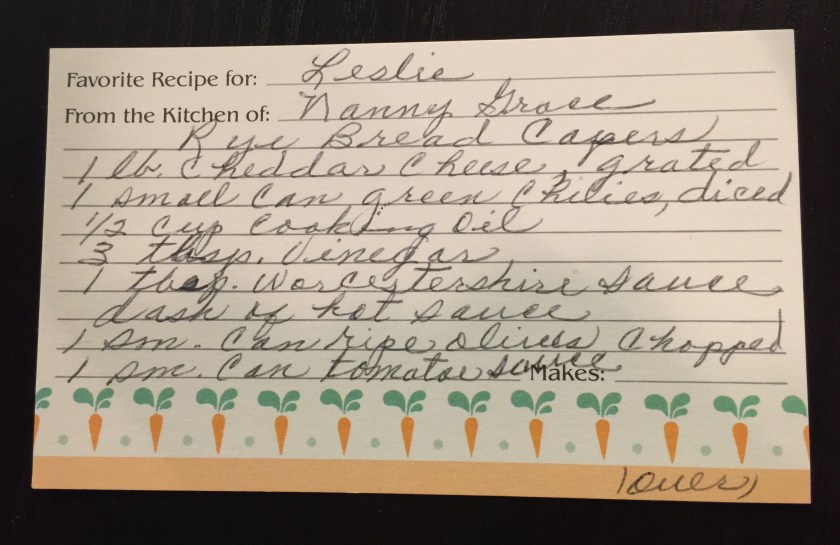 Favorite Recipe for: Leslie
From the Kitchen of: Nanny Grace
Rye Bread Capers
1 lb. Cheddar Cheese, grated
1 small can green chilies, diced
1/2 cup cooking oil
3 tbsp. Vinegar
1 tbsp. Worcestershire sauce
dash of hot sauce
1 sm. can ripe olives chopped
1 sm. can tomatoe sauce Makes:
(over)